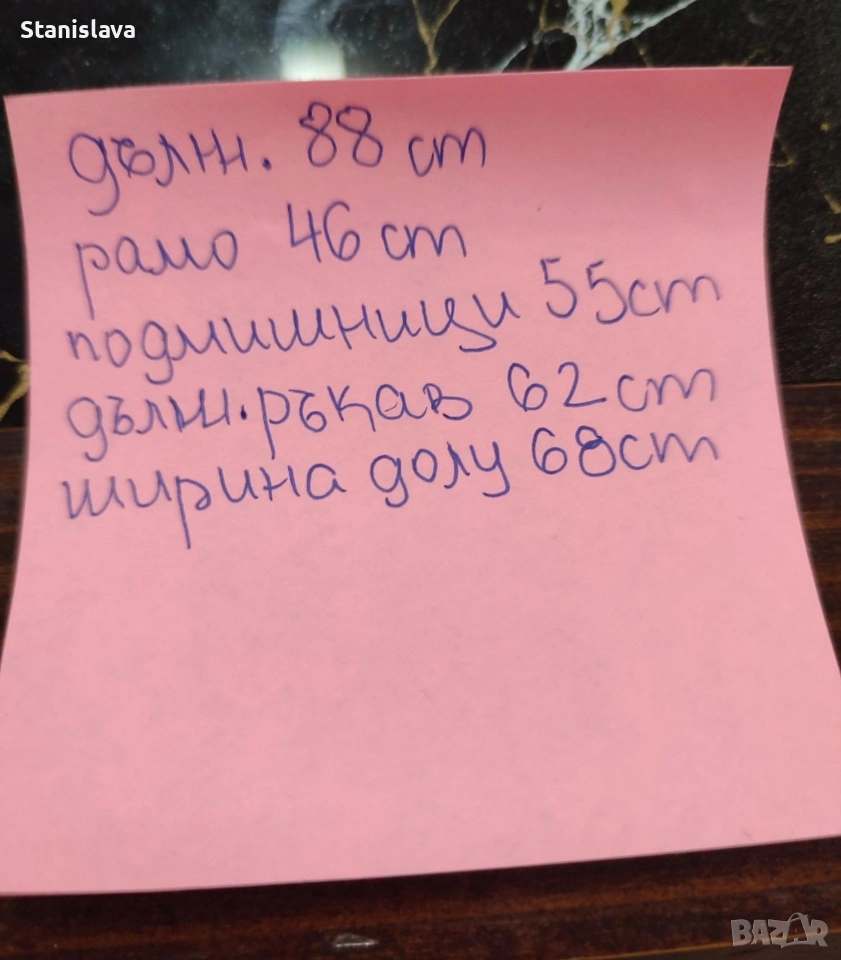 Stanislava
дълж. 88 cm
рамо 46 cm
подмишници 55cm
дълж. ръкав 62 cm
ширина долу 68cm
BAZAR